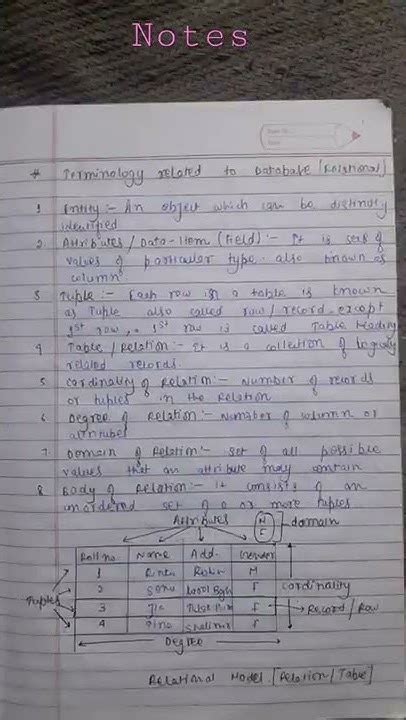 Notes
# Terminology related to Database [Relational]
1 Entity :- An object which can be distinctly
identified
2 Attributes / Data-Item (Field) :- It is set of
values of particular type. also known as
column
3 Tuple :- Each row in a table is known
as Tuple also called row/record. except
1st row, 1st row is called Table heading
4 Table/Relation :- It is a collection of logically
related records.
5 Cardinality of Relation :- Number of records
or tuples in the Relation
6 Degree of Relation :- Number of column or
attributes
7 Domain of Relation :- set of all possible
values that an attribute may contain
8 Body of Relation :- It consists of an
unordered set of 0 or more tuples
Attributes M F domain
Roll no. Name Add. Gender
1 M
2 F Cardinality
Tuples 3 F Record/Row
4 F
Degree
Relational Model [Relation/Table]